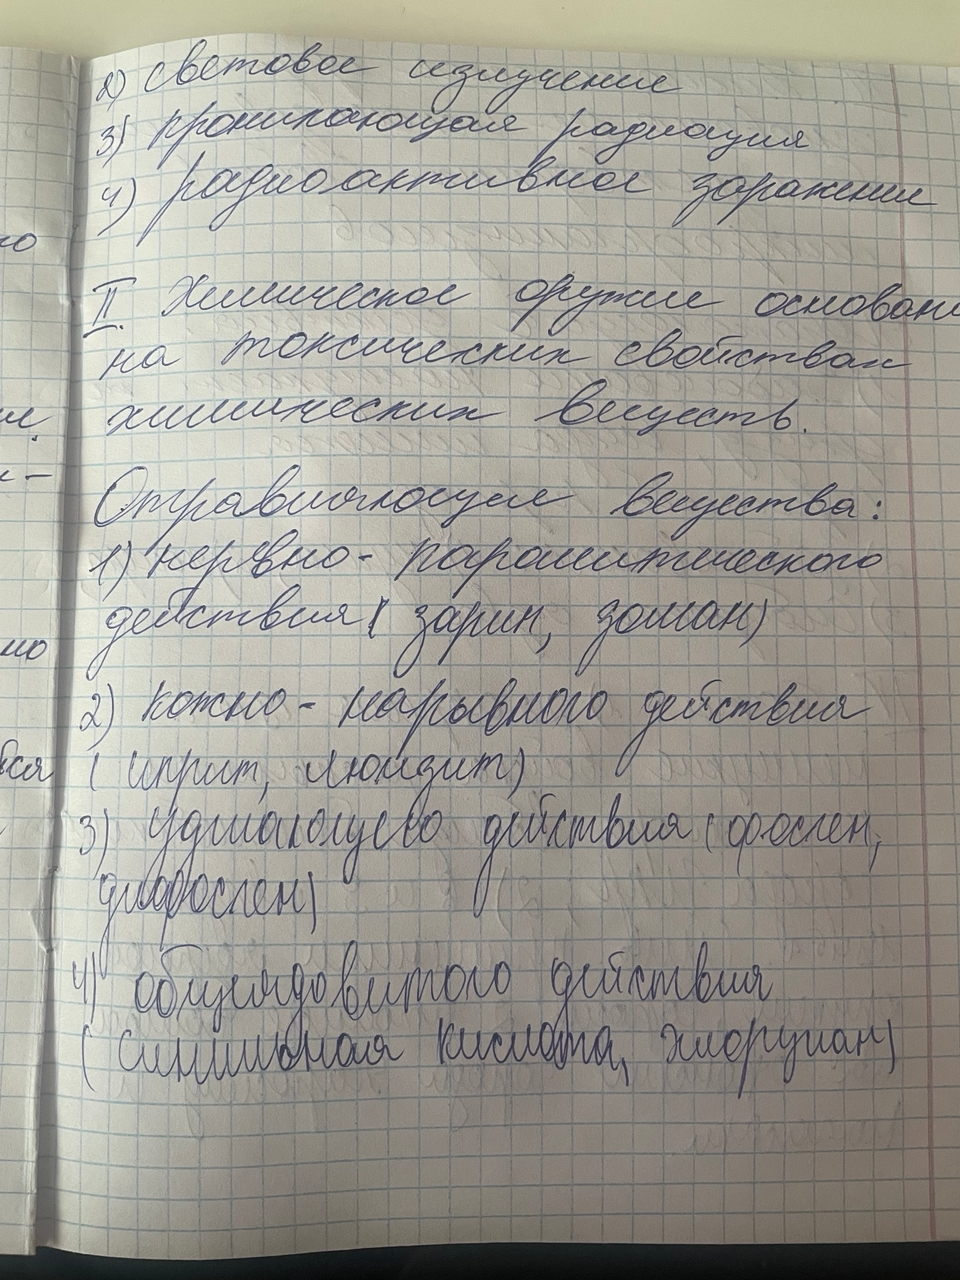 2) световое излучение
3) проникающая радиация
4) радиоактивное заражение
II. Химическое оружие основан
на токсических свойствах
химических веществ.
Отравляющие вещества:
1) нервно-паралитического
действия ( зарин, зоман)
2) кожно-нарывного действия
( иприт, люизит)
3) удушающего действия (фосген,
дифосген)
4) общеядовитого действия
( синильная кислота, хлорциан)